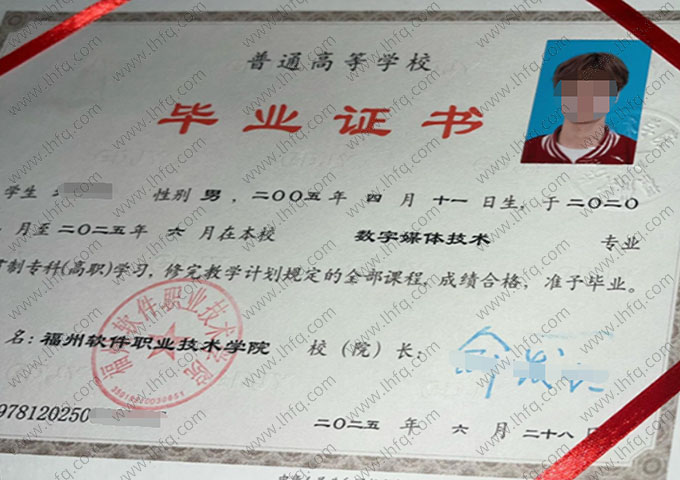 普通高等学校
毕业证书
学生 性别 男 ，二〇〇五年 四 月 十一 日生，于 二〇二〇
月至 二〇二五年 六 月在本校 数字媒体技术 专业
制专科(高职)学习，修完教学计划规定的全部课程，成绩合格，准予毕业。
名：福州软件职业技术学院 校（院）长：
福州软件职业技术学院
978120250
二〇二五 年 六 月 二十八 日
www.lhfq.com